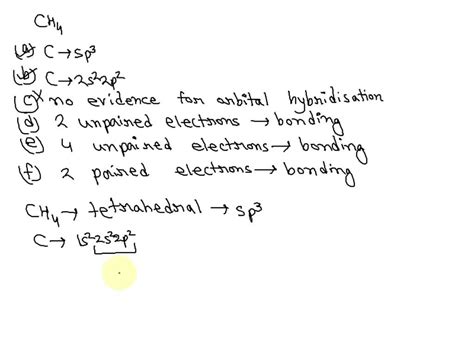 CH₄
(a) C → sp³
(b) C → 2s²2p²
(c) no evidence for orbital hybridisation
(d) 2 unpaired electrons → bonding
(e) 4 unpaired electrons → bonding
(f) 2 paired electrons → bonding
CH₄ → tetrahedral → sp³
C → 1s²2s²2p²